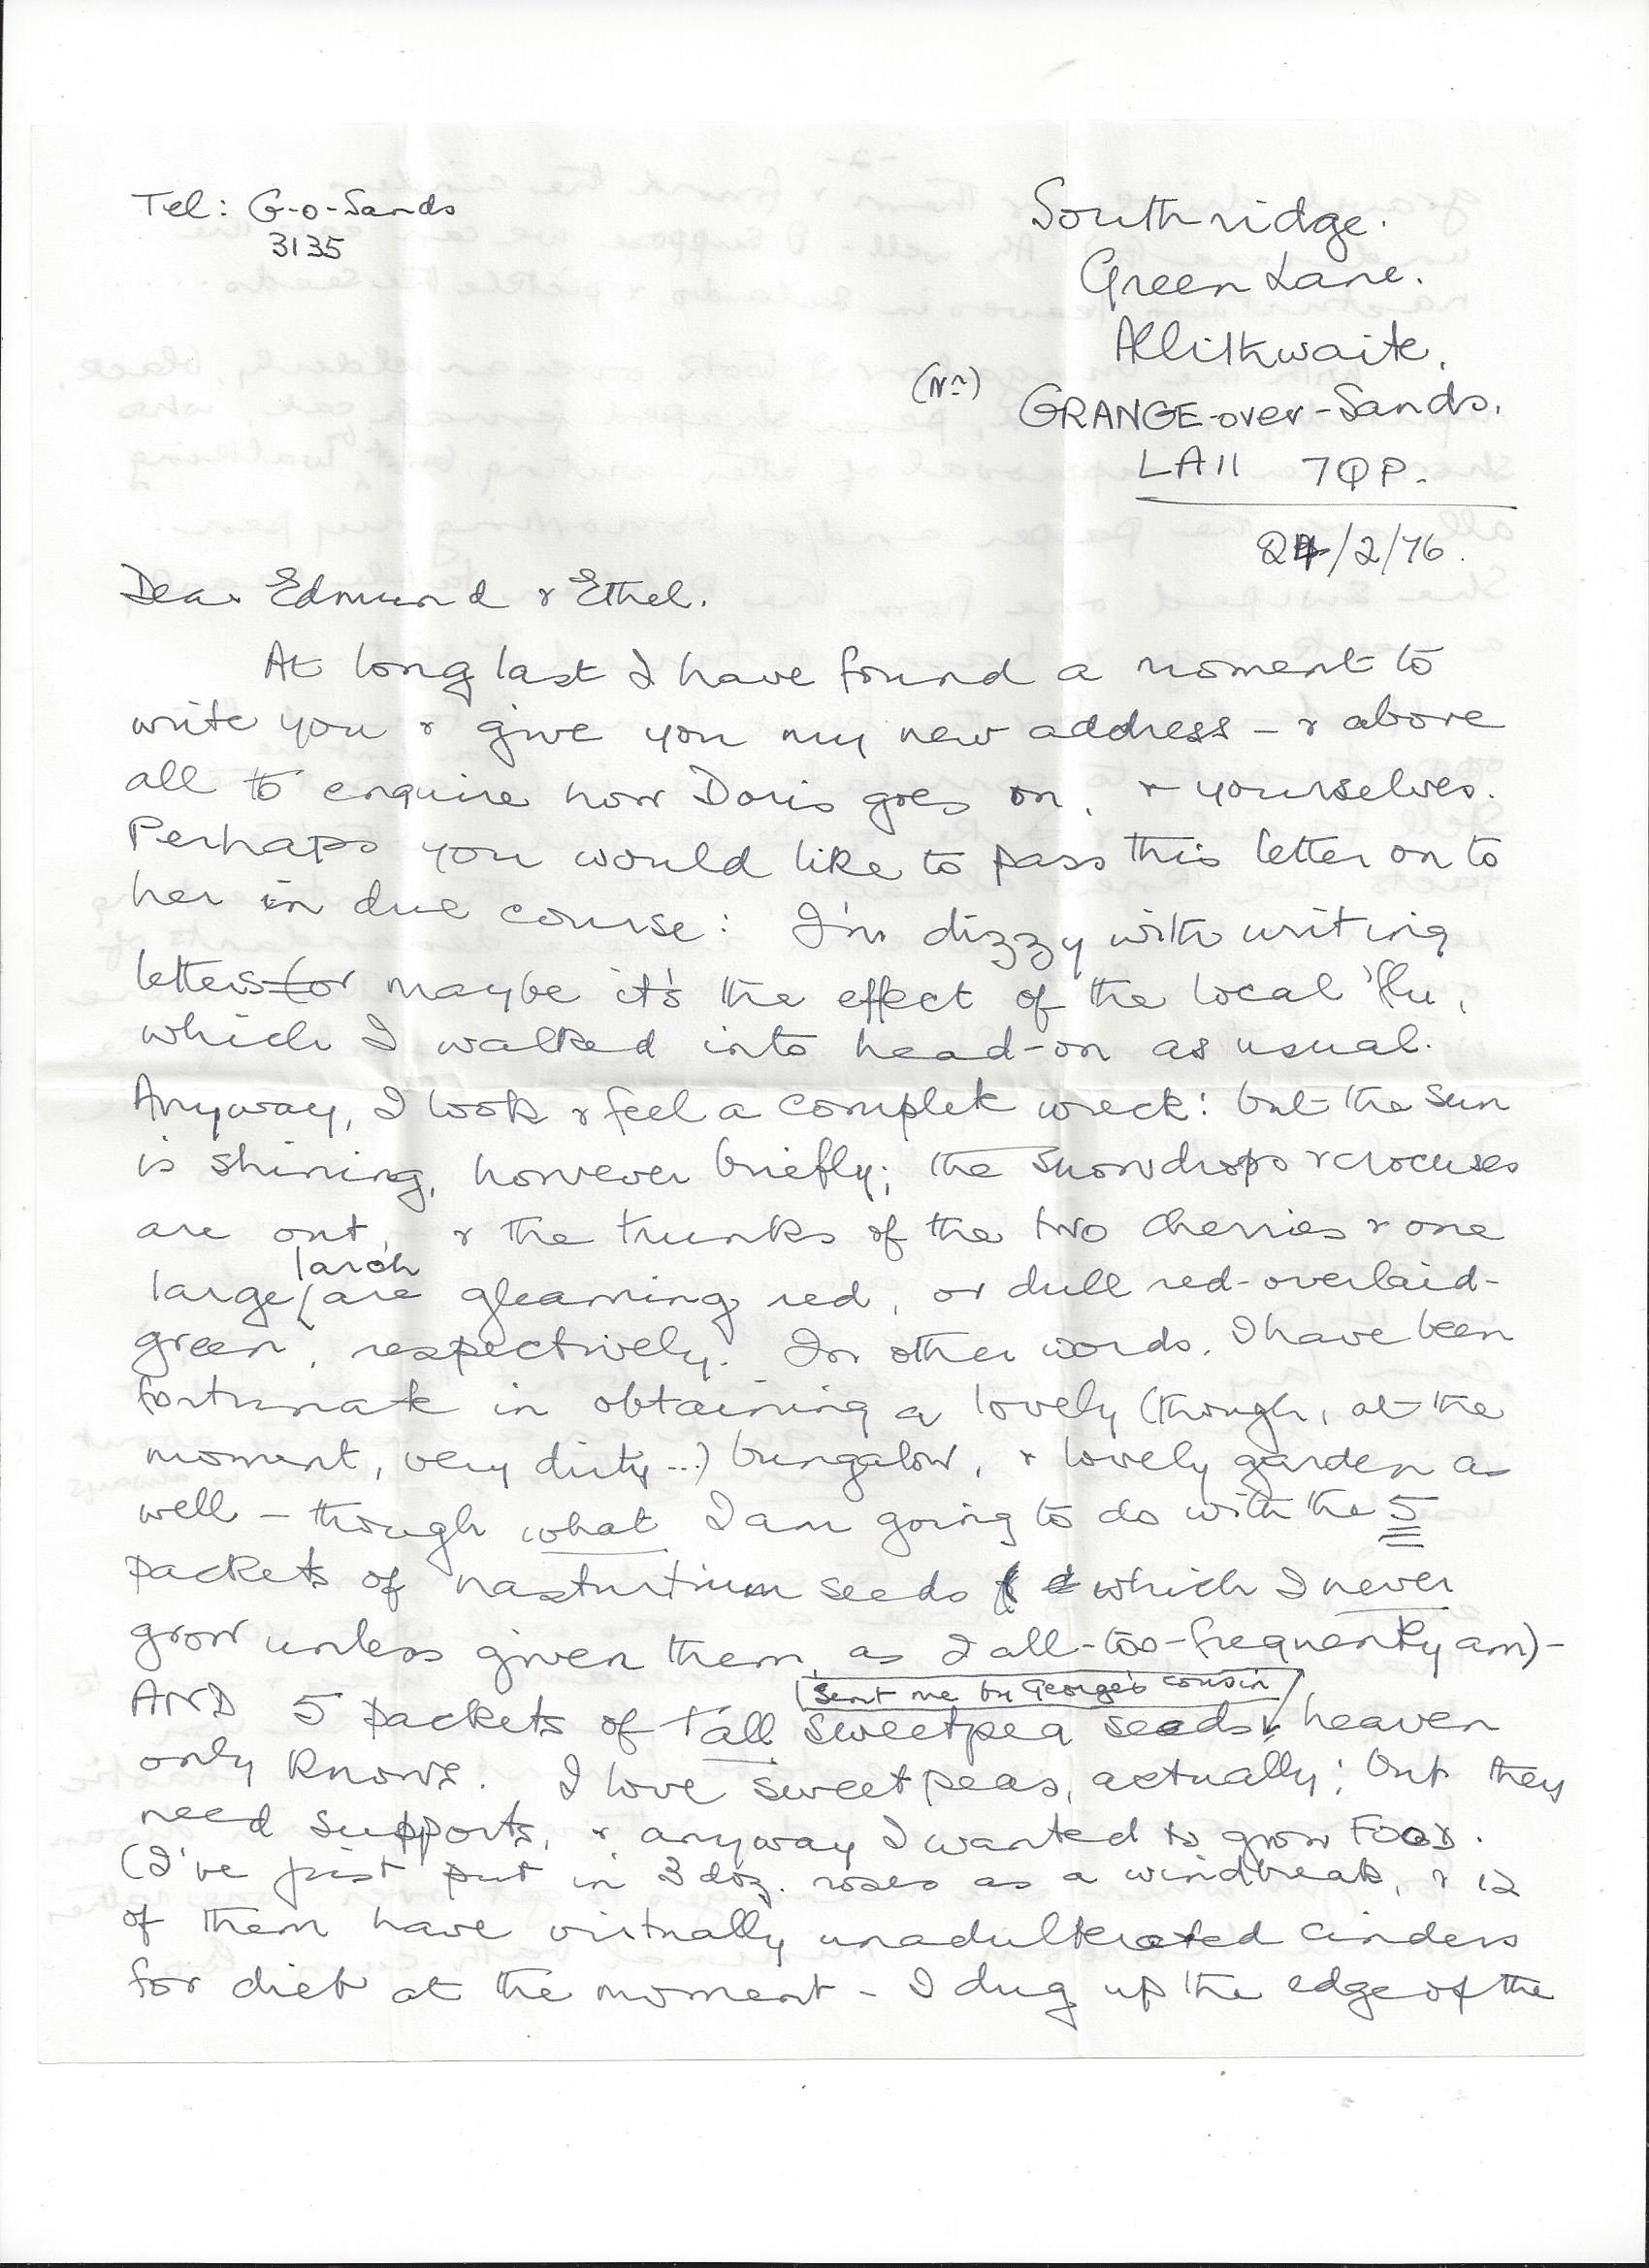 Tel: G-o-Sands
3135
Southridge.
Green Lane.
Allithwaite.
(Nr) GRANGE-over-Sands.
LA11 7QP.
/2/76.
Dear Edmund & Ethel.
At long last I have found a moment to
write you & give you my new address - & above
all to enquire how Doris goes on, & yourselves.
Perhaps you would like to pass this letter on to
her in due course: I'm dizzy with writing
letters (or maybe it's the effect of the local 'flu,
which I walked into head-on as usual.
Anyway, I look & feel a complete wreck: but the sun
is shining, however briefly; the snowdrops & crocuses
are out, & the trunks of the two cherries & one
large larch are gleaming red, or dull red-overlaid-
green, respectively. In other words, I have been
fortunate in obtaining a lovely (though, at the
moment, very dirty...) bungalow, & lovely garden as
well - though what I am going to do with the 5
packets of nasturtium seeds ( which I never
grow unless given them, as I all-too-frequently am) -
AND 5 packets of tall sweetpea seeds (sent me by George's cousin) heaven
only knows. I love sweetpeas, actually; but they
need supports, & anyway I wanted to grow FOOD.
(I've just put in 3 doz. roses as a windbreak, & 12
of them have virtually unadulterated cinders
for diet at the moment - I dug up the edge of the